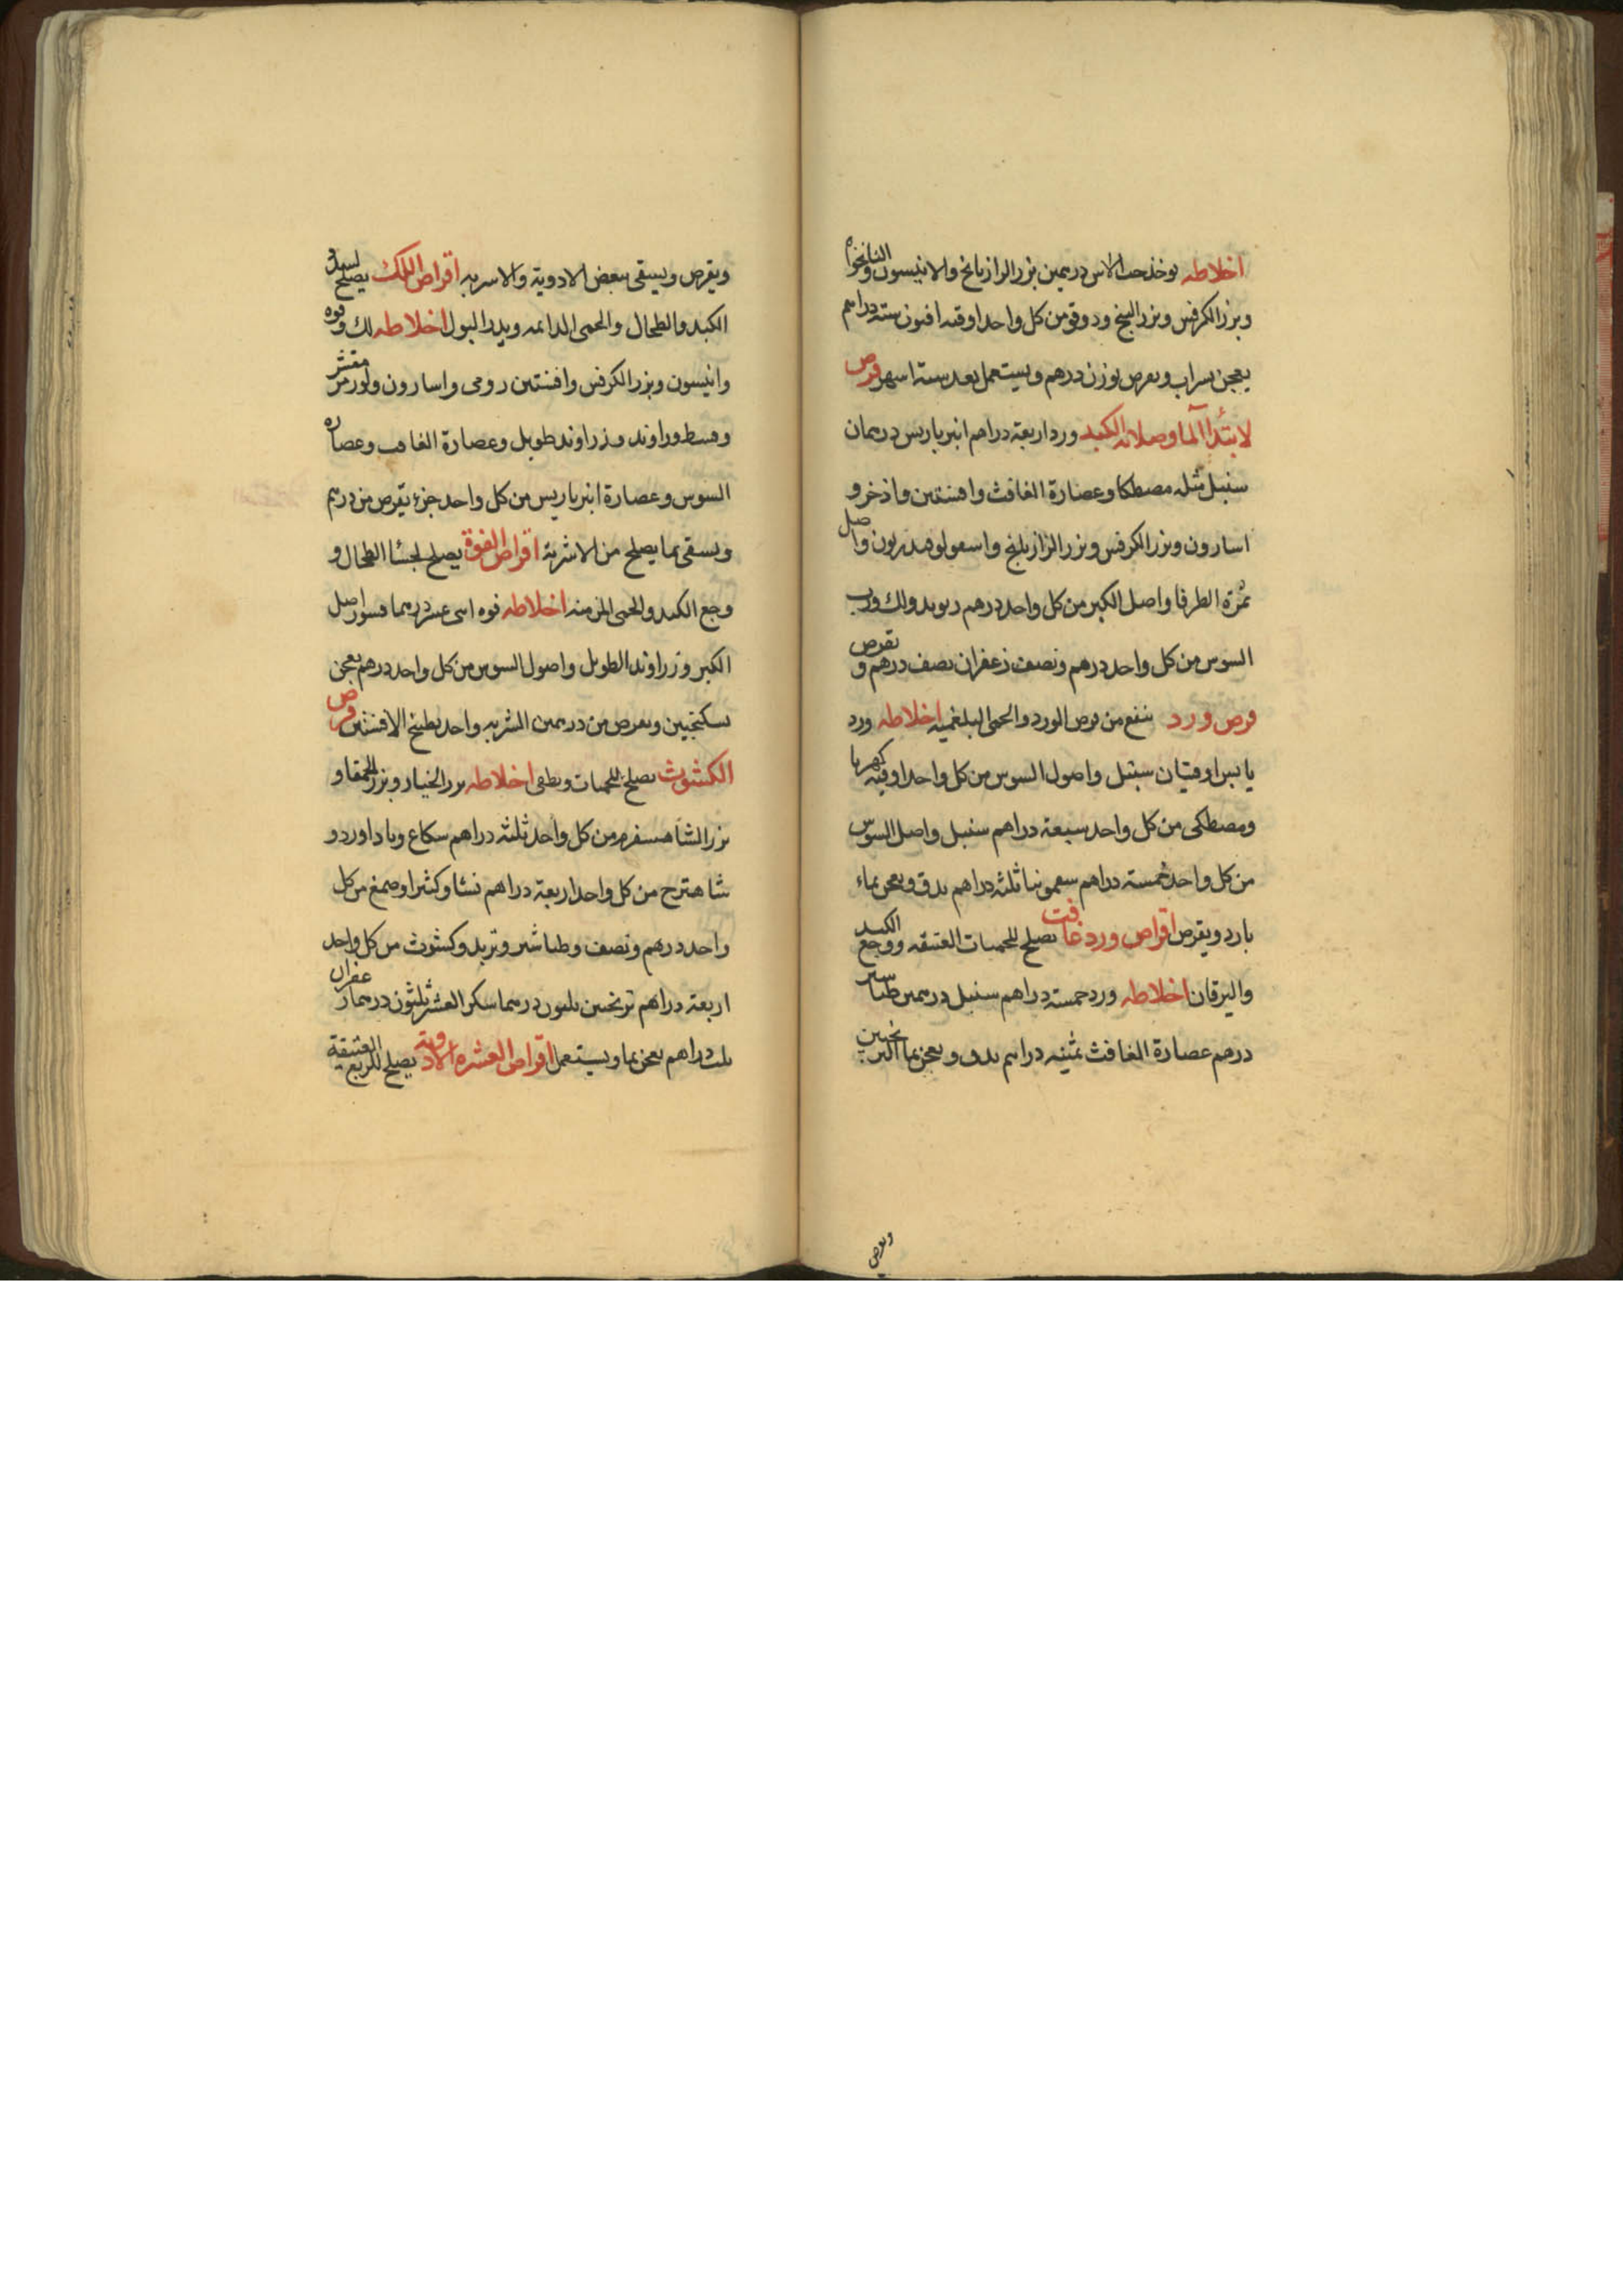 اخلاطه يوخذ حب الاس درهمين بزر الرازيانج والانيسون والنانخواه
وبزر الكرفس وبزر البنج ودوقو من كل واحد اوقيه افيون ستة دراهم
يعجن بشراب ويقرص بوزن درهم ويستعمل بعد ستة اشهر قرص
لابتدآ الما وصلابة الكبد ورد اربعة دراهم انبرباريس درهمان
سنبل مثله مصطكا وعصارة الغافث وافسنتين واذخر و
اسارون وبزر الكرفس وبزر الرازيانج واسقولوقندريون واصل
ثمرة الطرفا واصل الكبر من كل واحد درهم ريوند ولك ورب
السوس من كل واحد درهم ونصف زعفران نصف درهم ويقرص
قرص ورد ينفع من قرص الورد والحمى البلغميه اخلاطه ورد
يابس اوقيتان سنبل واصول السوس من كل واحد اوقيه كهربا
ومصطكى من كل واحد سبعة دراهم سنبل واصل السوس
من كل واحد خمسة دراهم سقمونيا ثلثه دراهم يدق ويعجن بماء
بارد ويقرص اقراص ورد غافت يصلح للحميات العتيقه ووجع الكبد
واليرقان اخلاطه ورد خمسة دراهم سنبل درهمين طباشير
درهم عصارة الغافث ثمنيه دراهم يدق ويعجن بماء الترنجبين
ويقرص
ويقرص ويسقى ببعض الادوية والاشربه اقراص اللك يصلح لسدد
الكبد والطحال والحمى الدائمه ويدر البول اخلاطه لك وفوه
وانيسون وبزر الكرفس وافسنتين رومى واسارون ولوز مر مقشر
وقسط وراوند وزراوند طويل وعصارة الغافث وعصاره
السوس وعصارة انبرباريس من كل واحد جزء يقرص من درهم
ويسقى بما يصلح من الاشربة اقراص الفوة يصلح لجسا الطحال و
وجع الكبد والحمى المزمنه اخلاطه فوه اثنى عشر درهما قشور اصل
الكبر وزراوند الطويل واصول السوس من كل واحد درهم يعجن
بسكنجبين ويقرص من درهمين الشربه واحد بطبيخ الافسنتين قرص
الكشوث يصلح للحميات ويطفى اخلاطه بزر الخيار وبزر الحمقا و
بزر الشاهسفرم من كل واحد ثلثه دراهم شكاع وباداورد و
شاهترج من كل واحد اربعة دراهم نشا وكثيرا وصمغ من كل
واحد درهم ونصف وطباشير وتربد وكشوث من كل واحد
اربعة دراهم ترنجبين ثلثون درهما سكر العشر ثلثون درهما زعفران
ثلث دراهم يعجن بما ويستعمل اقراص العشره الادوية يصلح للربع العتيقة